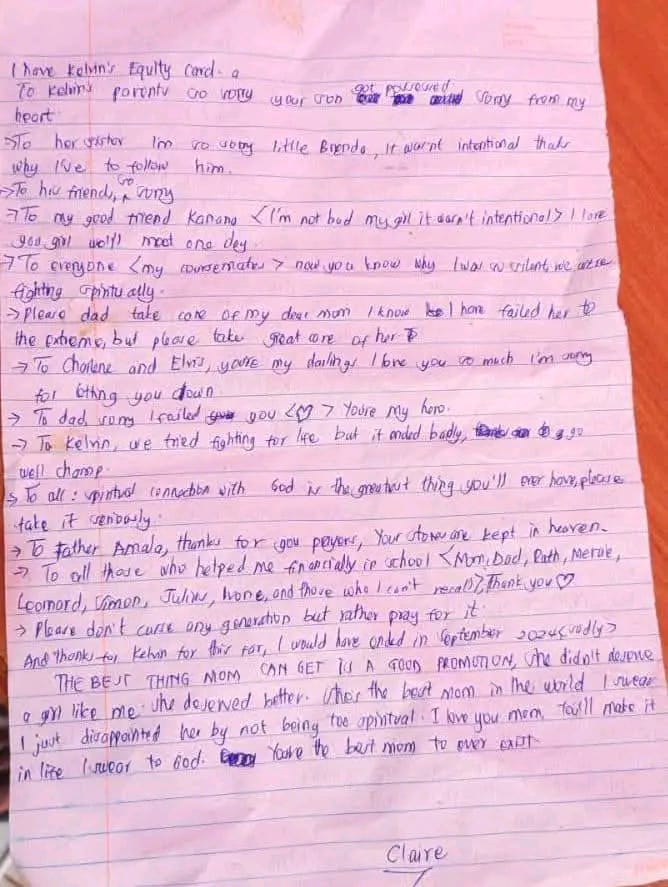 I have Kelvin's Equity Card. a
To Kelvin's parents so sorry your son got possessed sorry from my
heart
→To her sister I'm so sorry little Brenda, It wasn't intentional thats
why I've to follow him.
→To his friend, so sorry
→To my good friend Kanana <I'm not bad my girl it wasn't intentional> I love
you girl we'll meet one day.
→To everyone <my coursemates> now you know why I was so silent, we were
fighting spiritually.
→Please dad take care of my dear mom I know I have failed her to
the extreme, but please take great care of her
→To Charlene and Elvis, you're my darlings I love you so much I'm sorry
for letting you down
→To dad, sorry I failed you <♡> You're my hero.
→To Kelvin, we tried fighting for life but it ended badly, go
well champ.
→To all: spiritual connection with God is the greatest thing you'll ever have, please
take it seriously.
→To Father Amala, thanks for you prayers, Your are kept in heaven.
→To all those who helped me financially in school <Mom, Dad, Ruth, Mercie,
Leornard, Simon, Julius, Ivone, and those who I can't recall>, Thank you ♡
→Please don't curse any generation but rather pray for it.
And thanks for Kelvin for this far, I would have ended in September 2024 <sadly>
THE BEST THING MOM CAN GET IS A GOOD PROMOTION, she didn't deserve
a girl like me. She deserved better. She's the best mom in the world I swear
I just disappointed her by not being too spiritual. I love you mom, You'll make it
in life I swear to God. You're the best mom to ever exist.
Claire